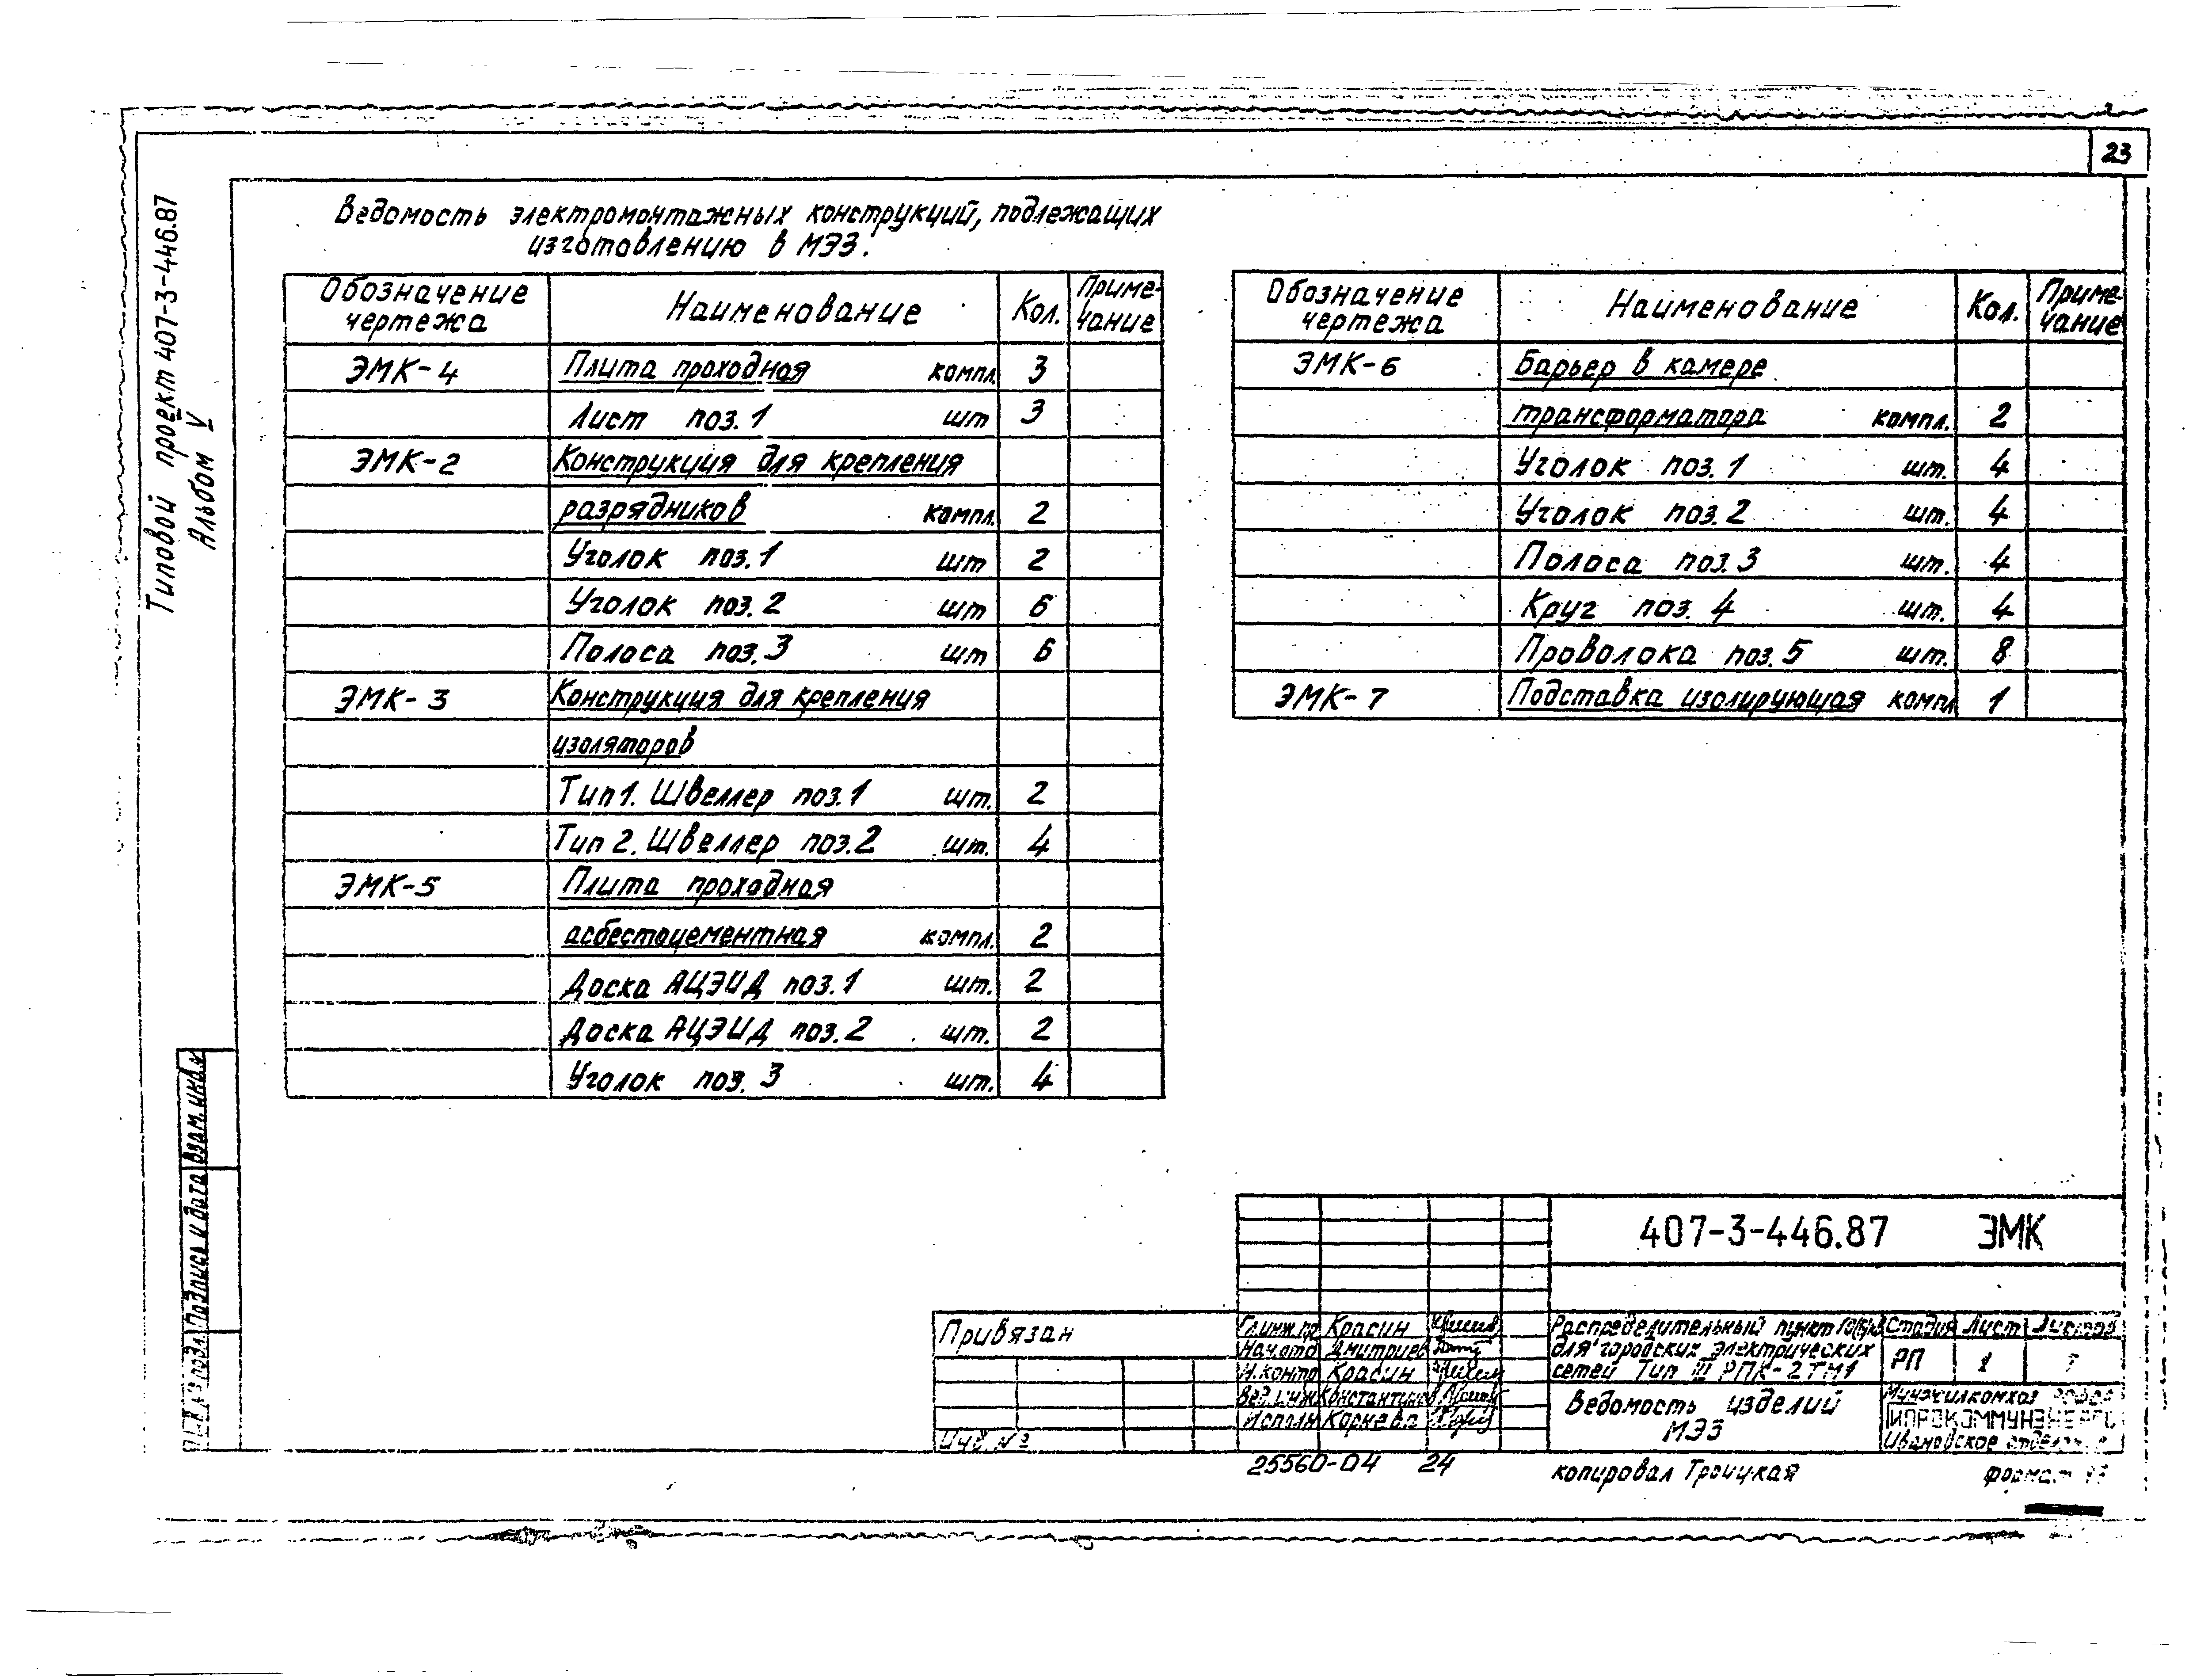 23
Типовой проект 407-3-446.87
Альбом V
Ведомость электромонтажных конструкций, подлежащих
изготовлению в МЭЗ.
Обозначение чертежа Наименование Кол. Приме-чание
ЭМК-4 Плита проходная компл. 3
Лист поз.1 шт 3
ЭМК-2 Конструкция для крепления
разрядников компл. 2
Уголок поз.1 шт 2
Уголок поз.2 шт 6
Полоса поз.3 шт 6
ЭМК-3 Конструкция для крепления
изоляторов
Тип 1. Швеллер поз.1 шт. 2
Тип 2. Швеллер поз.2 шт. 4
ЭМК-5 Плита проходная
асбестоцементная компл. 2
Доска АЦЭИД поз.1 шт. 2
Доска АЦЭИД поз.2 шт. 2
Уголок поз. 3 шт. 4
Обозначение чертежа Наименование Кол. Приме-чание
ЭМК-6 Барьер в камере
трансформатора компл. 2
Уголок поз.1 шт. 4
Уголок поз.2 шт. 4
Полоса поз.3 шт. 4
Круг поз. 4 шт. 4
Проволока поз.5 шт. 8
ЭМК-7 Подставка изолирующая компл 1
Взам. инв.
Подпись и дата
407-3-446.87 ЭМК
Привязан
Инв. №
Гл.инж.пр Красин
Нач.отд Дмитриев
Н.контр Красин
Вед.инж Константинов
Исполн Корнева
Распределительный пункт
для городских электрических
сетей Тип III РПК-2ТМ1
Стадия Лист Листов
РП 1
Ведомость изделий
МЭЗ
Ивановское
25560-04 24
копировал Троицкая
формат